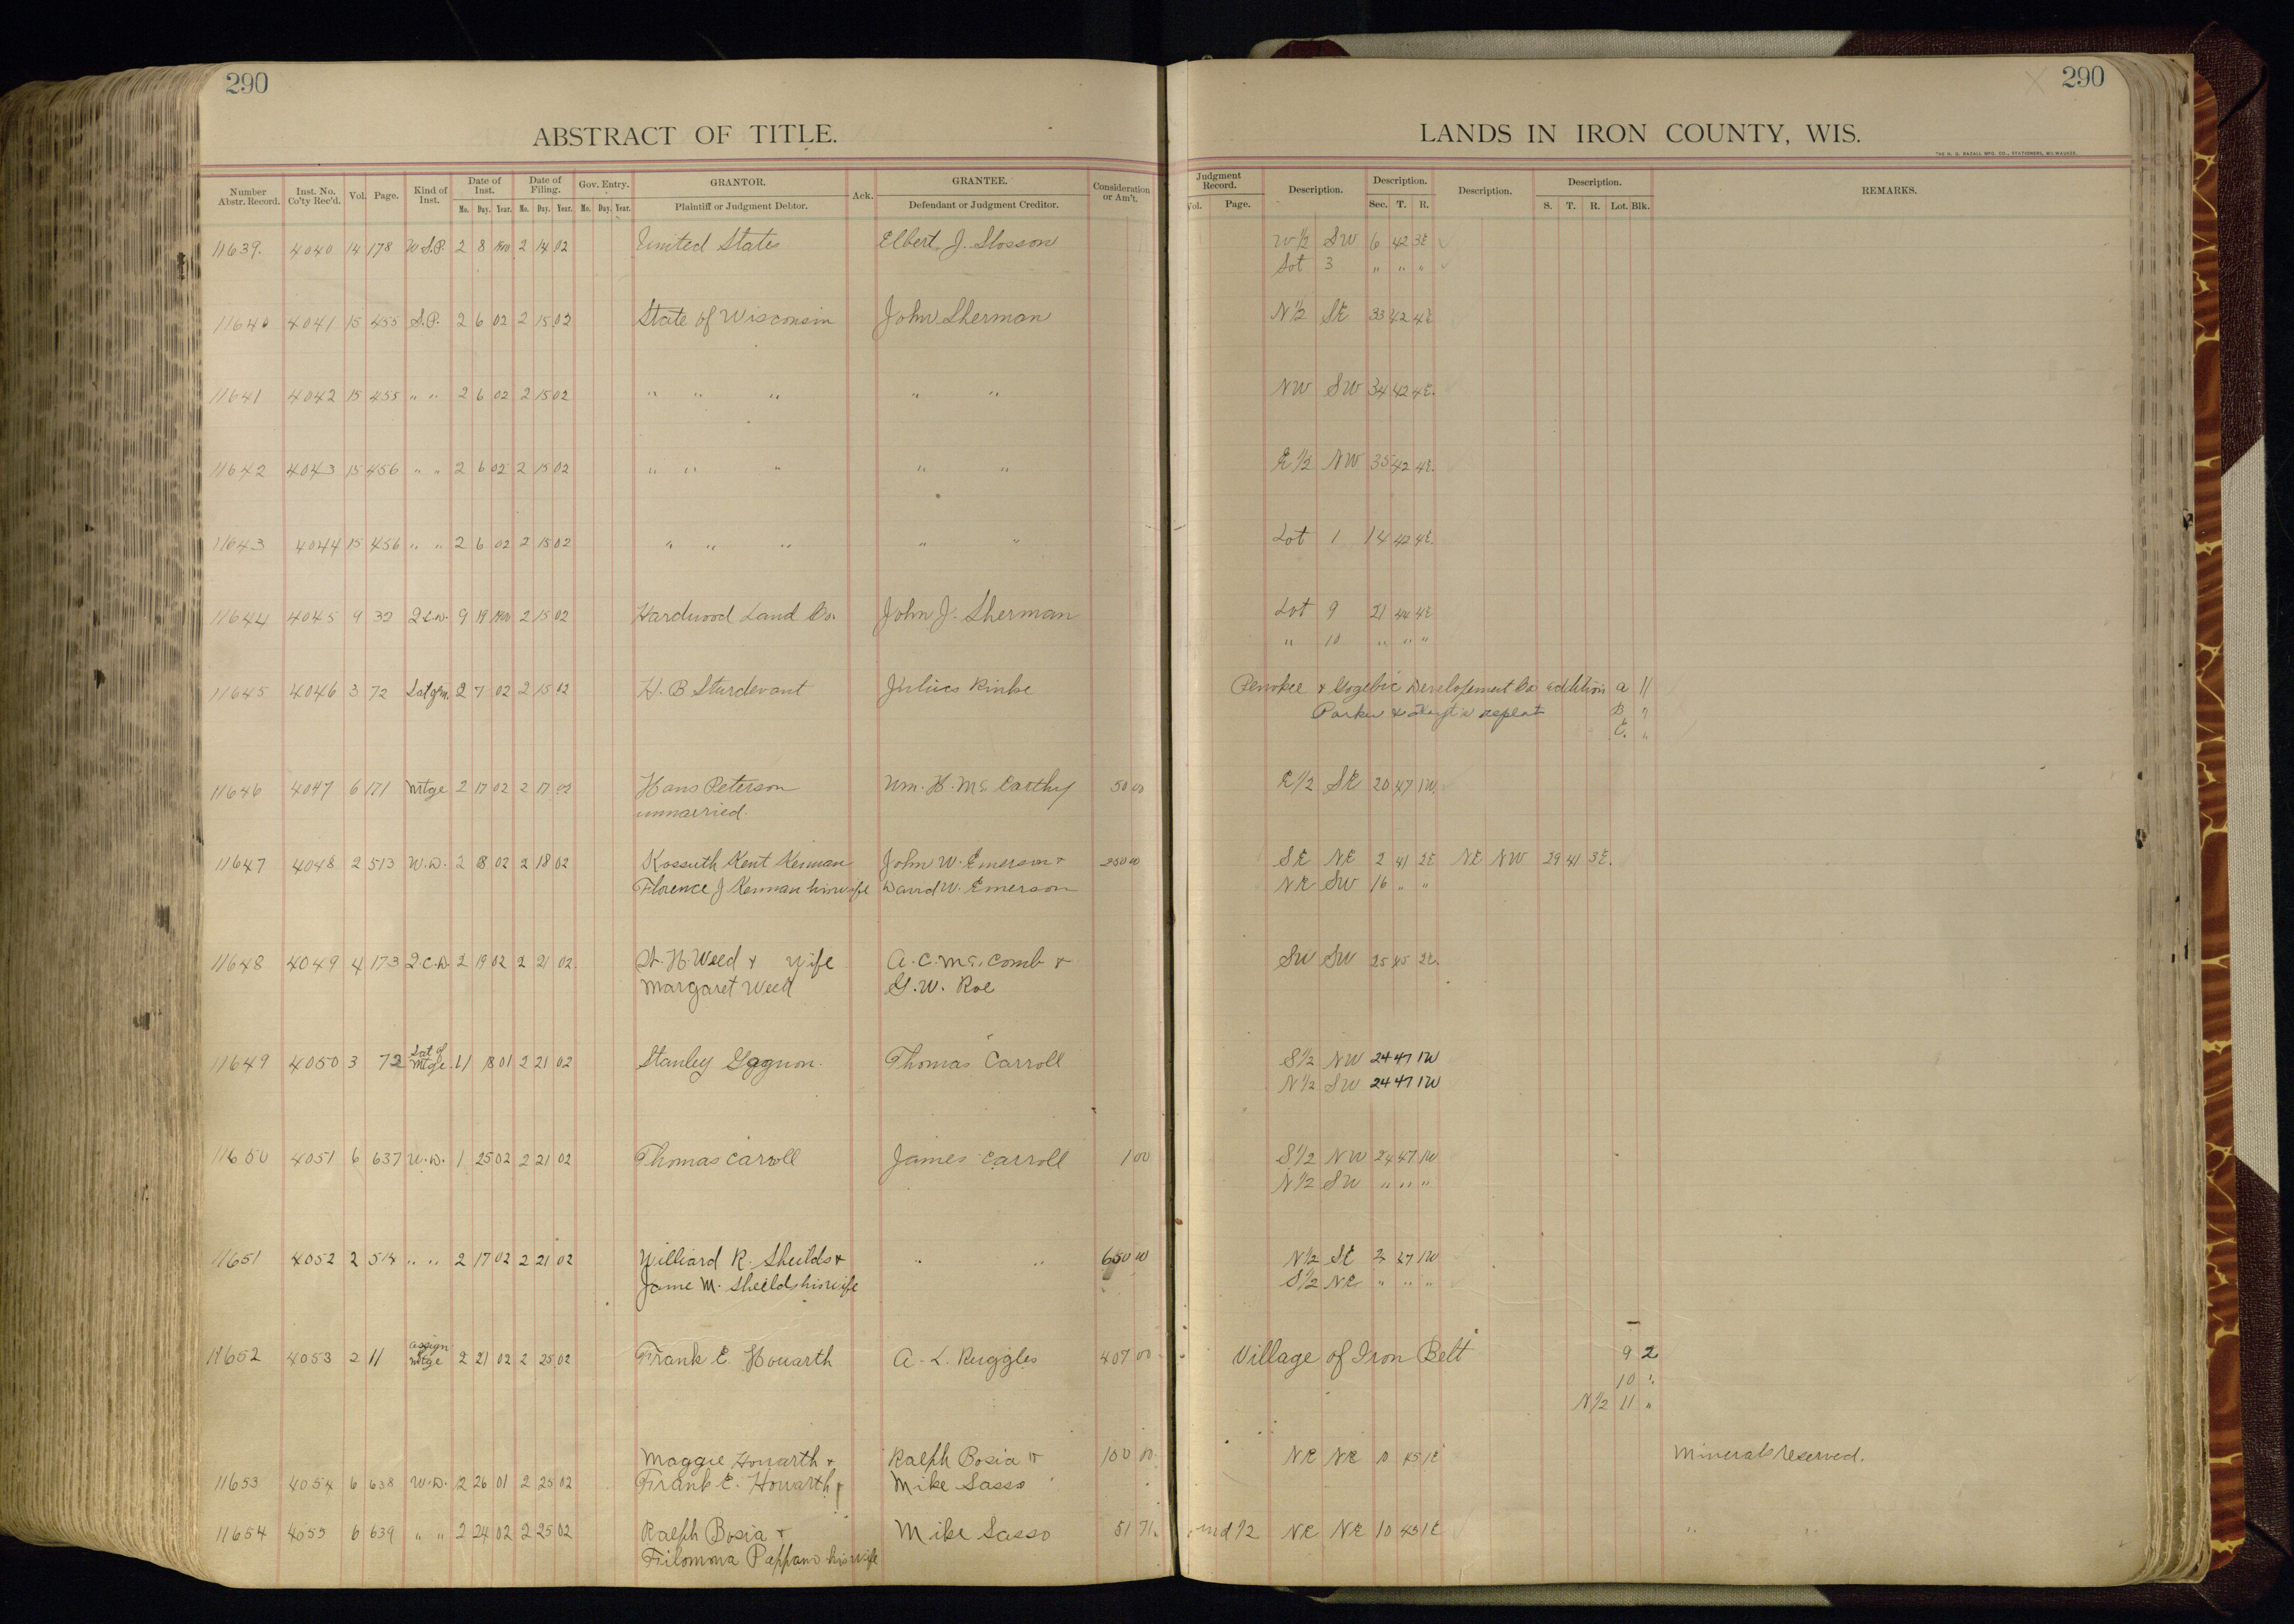 290
290
ABSTRACT OF TITLE.
LANDS IN IRON COUNTY, WIS.
THE H. G. RAZALL MFG. CO., STATIONERS, MILWAUKEE.
Number Abstr. Record. Inst. No. Co'ty Rec'd. Vol. Page. Kind of Inst. Date of Inst. Mo. Day. Year. Date of Filing. Mo. Day. Year. Gov. Entry. Mo. Day. Year. GRANTOR. Plaintiff or Judgment Debtor. Ack. GRANTEE. Defendant or Judgment Creditor. Consideration or Am't. Judgment Record. Vol. Page. Description. Description. Sec. T. R. Description. Description. S. T. R. Lot. Blk. REMARKS.
11639. 4040 14 178 2 8 1900 2 14 02 United States Elbert J. Slosson W 1/2 SW 6 42 3E
Lot 3 " " "
11640 4041 15 455 S.P. 2 6 02 2 15 02 State of Wisconsin John Sherman N 1/2 SE 33 42 4E
11641 4042 15 455 " " 2 6 02 2 15 02 " " " " " NW SW 34 42 4E.
11642 4043 15 456 " " 2 6 02 2 15 02 " " " " " E 1/2 NW 35 42 4E.
11643 4044 15 456 " " 2 6 02 2 15 02 " " " " " Lot 1 14 42 4E.
11644 4045 9 32 Q.C.D. 9 19 1900 2 15 02 Hardwood Land Co. John J. Sherman Lot 9 21 44 4E
" 10 " " "
11645 4046 3 72 2 7 02 2 15 02 H. B Sturdevant Julius Rinke Penokee & Gogebic Developement Co addition a 11
Parker & replat B
C. "
11646 4047 6 171 Mtge 2 17 02 2 17 02 Hans Peterson Wm. H. McCarthy 50 00 E 1/2 SE 20 47 1W.
unmarried.
11647 4048 2 513 W.D. 2 18 02 2 18 02 Kossuth Kent Kennan John W. Emerson & 250 00 SE NE 2 41 2E NE NW 29 41 3E.
Florence J Kennan his wife David W. Emerson NE SW 16 " "
11648 4049 4 173 Q.C.D. 2 19 02 2 21 02 H. Weed & Wife A. C. McComb & SW SW 25 45 2E.
Margaret Weed G. W. Roe
11649 4050 3 72 Sat of Mtge 11 18 01 2 21 02 Stanley Gagnon. Thomas Carroll S 1/2 NW 24 47 1W
N 1/2 SW 24 47 1W
11650 4051 6 637 W.D. 1 25 02 2 21 02 Thomas Carroll James Carroll 1 00 S 1/2 NW 24 47 1W
N 1/2 SW " " "
11651 4052 2 514 " " 2 17 02 2 21 02 Williard R. Sheilds & " " 650 00 N 1/2 SE 2 47 1W
Jame M. Sheilds his wife S 1/2 NE " " "
11652 4053 2 11 assign Mtge 2 21 02 2 25 02 Frank E. Howarth A. L. Ruggles 407 00 Village of Iron Belt 9 2
10 "
N 1/2 11 "
Maggie Howarth & Ralph Bosia & 100 00 NE NE 10 45 1E Minerals reserved.
11653 4054 6 638 W.D. 12 26 01 2 25 02 Frank E. Howarth Mike Sasso
11654 4055 6 639 " " 2 24 02 2 25 02 Ralph Bosia & Mike Sasso 51 71 und 1/2 NE NE 10 45 1E " "
Filomma Pappano his wife